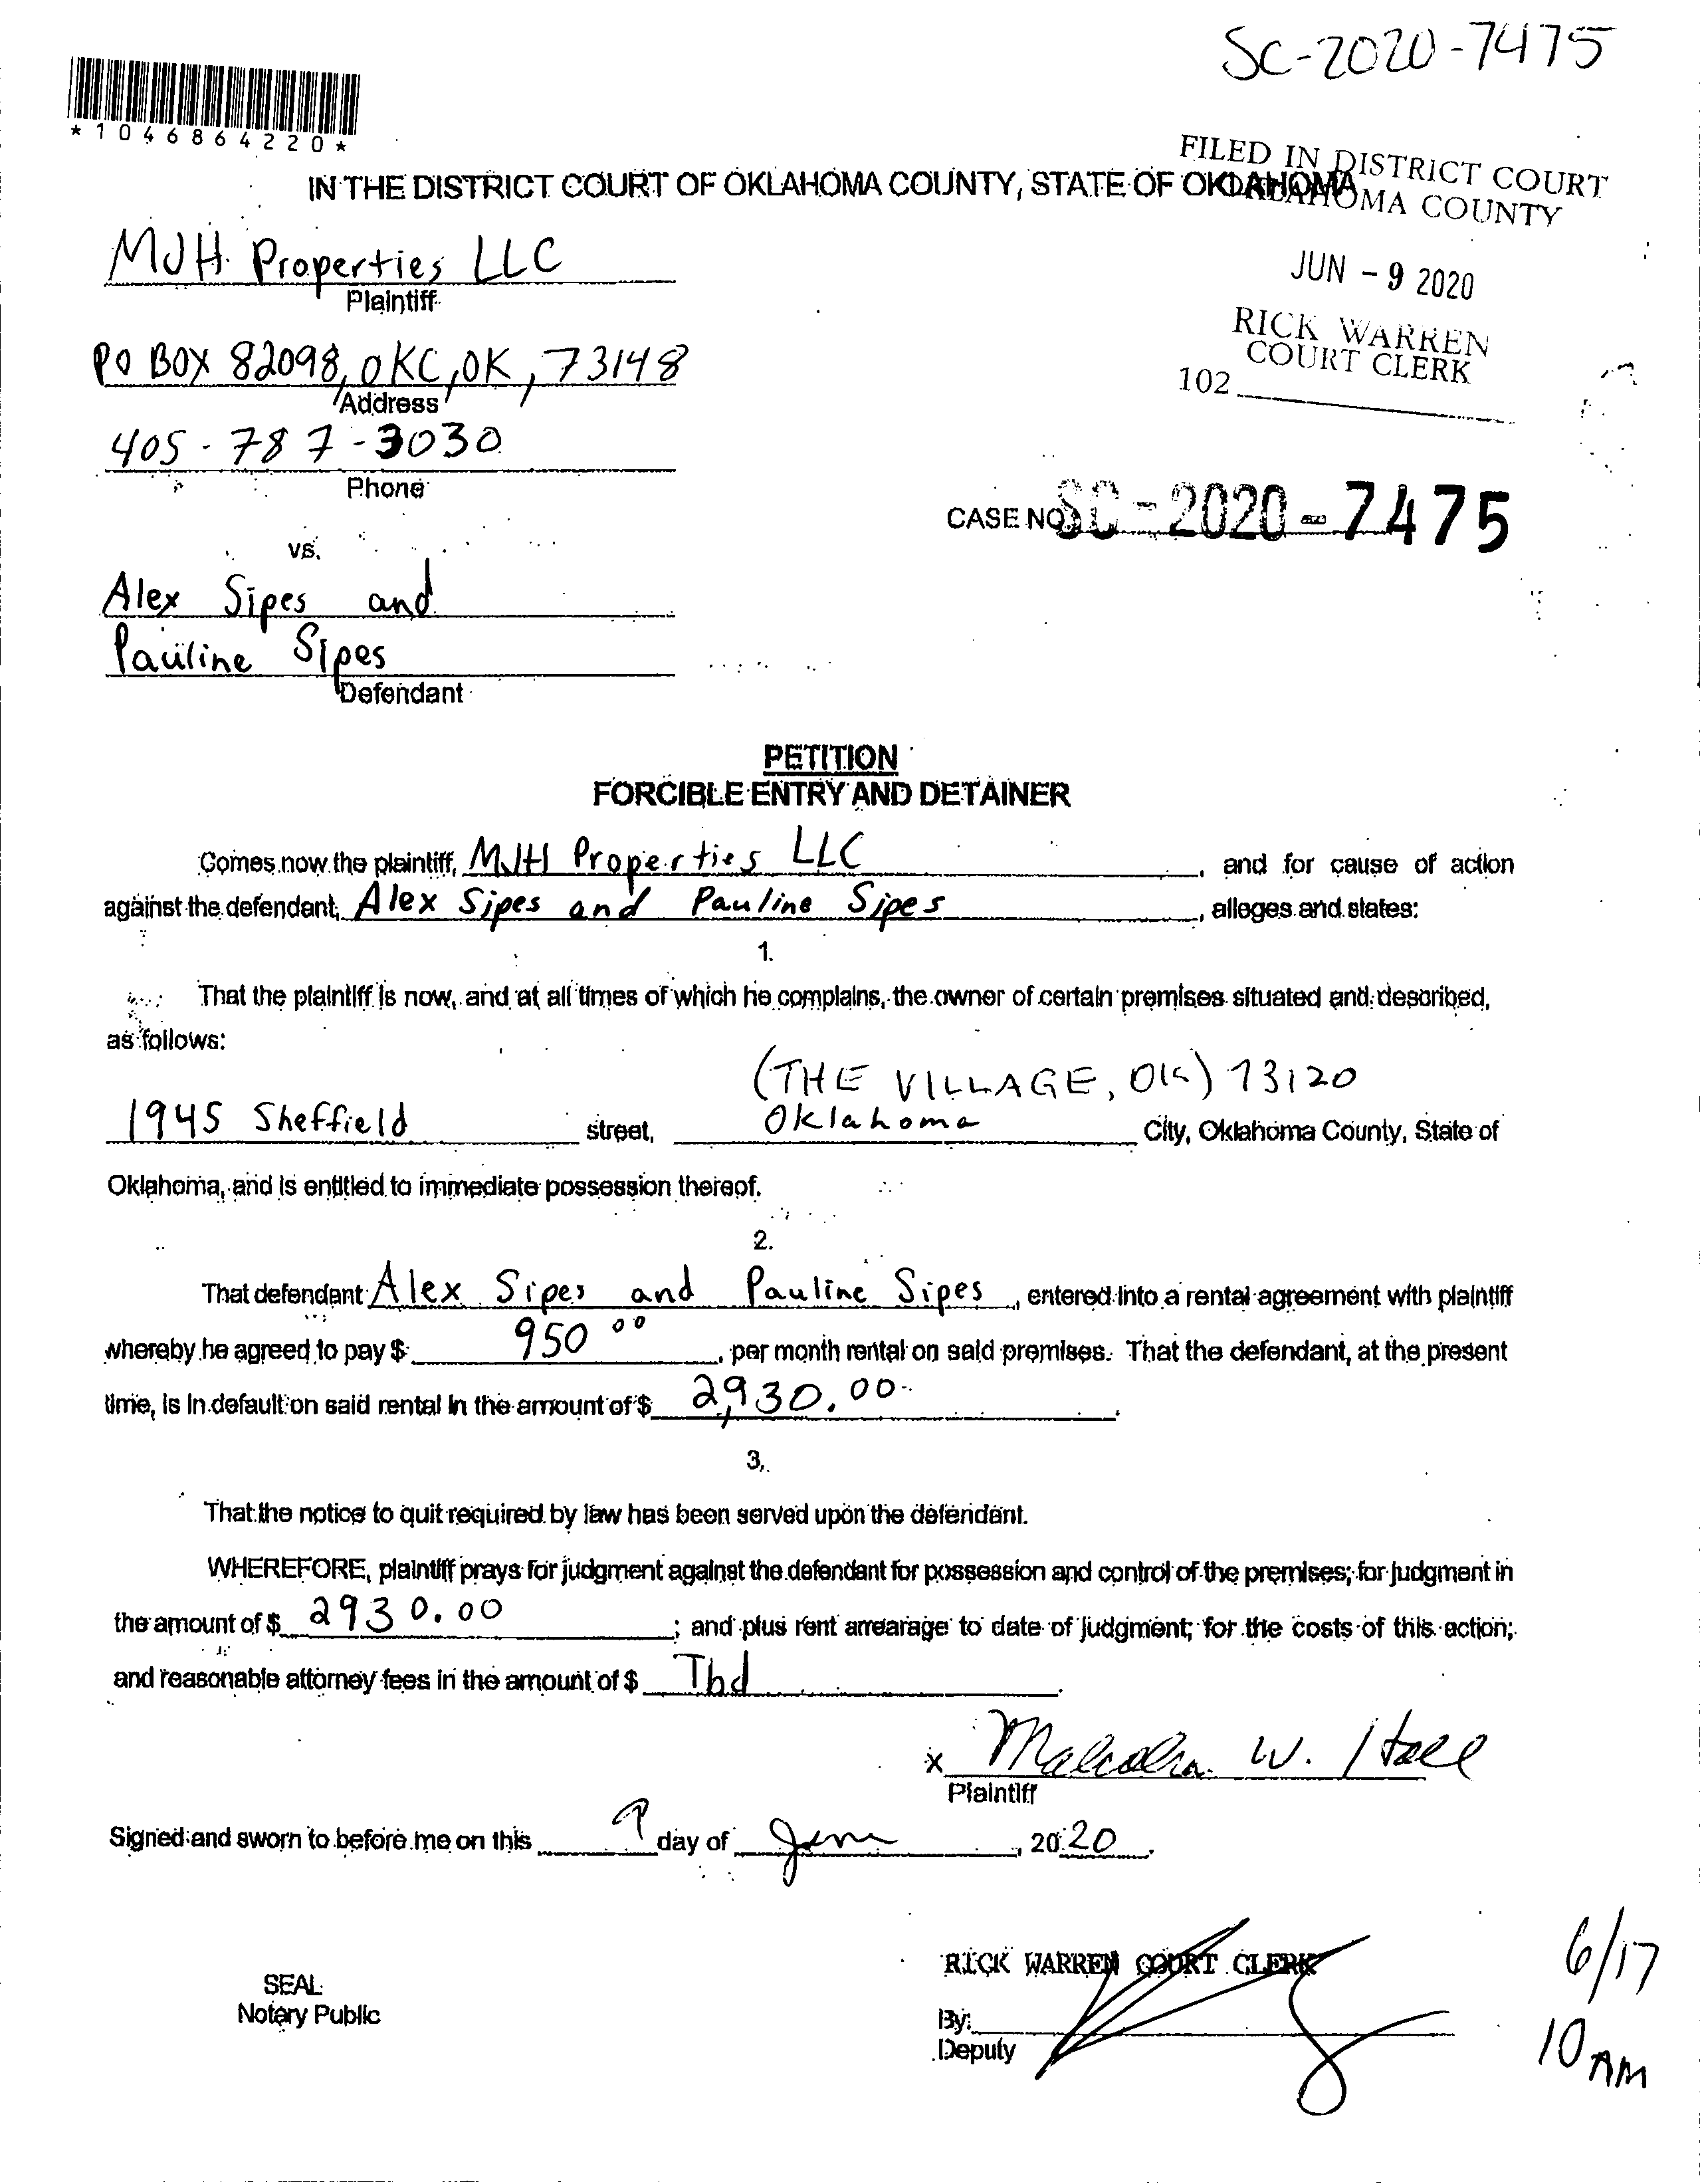 SC-2020-7475
*1046864220*
FILED IN DISTRICT COURT
OKLAHOMA COUNTY
IN THE DISTRICT COURT OF OKLAHOMA COUNTY, STATE OF OKLAHOMA
JUN - 9 2020
RICK WARREN
COURT CLERK
102
MJH Properties LLC
Plaintiff
PO BOX 82098, OKC, OK, 73148
Address
405-787-3030
Phone
CASE NO. SC-2020-7475
vs.
Alex Sipes and
Pauline Sipes
Defendant
PETITION
FORCIBLE ENTRY AND DETAINER
Comes now the plaintiff, MJH Properties LLC, and for cause of action
against the defendant, Alex Sipes and Pauline Sipes, alleges and states:
1.
That the plaintiff is now, and at all times of which he complains, the owner of certain premises situated and described,
as follows:
(THE VILLAGE, OK) 73120
1945 Sheffield street, Oklahoma City, Oklahoma County, State of
Oklahoma, and is entitled to immediate possession thereof.
2.
That defendant Alex Sipes and Pauline Sipes, entered into a rental agreement with plaintiff
whereby he agreed to pay $ 950 00, per month rental on said premises. That the defendant, at the present
time, is in default on said rental in the amount of $ 2,930.00.
3.
That the notice to quit required by law has been served upon the defendant.
WHEREFORE, plaintiff prays for judgment against the defendant for possession and control of the premises; for judgment in
the amount of $ 2930.00; and plus rent arrearage to date of judgment; for the costs of this action;
and reasonable attorney fees in the amount of $ Tbd.
x Malcolm W. Hall
Plaintiff
Signed and sworn to before me on this 9 day of June, 2020.
RICK WARREN COURT CLERK
6/17
SEAL
Notary Public
By:
Deputy
10 AM